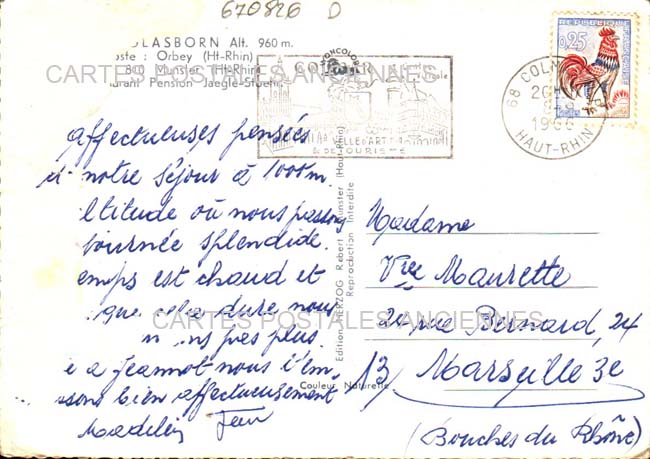 670826 D
GLASBORN Alt. 960 m.
oste : Orbey (Ht-Rhin)
Munster (Ht-Rhin)
urant Pension Jaegle-
CARTES POSTALES ANCIENNES
REPUBLIQUE
0,25
COLMAR
VILLE D'ART
& DE TOURISME
68 COLMAR
1966
HAUT-RHIN
affectueuses pensées
notre séjour à 1000 m
ltitude où nous passons
journée splendide.
emps est chaud et
que cela dure nous
ns pas plus.
e a Jeannot nous t'em-
ssons bien affectueusement
Madelein Jean
Edition HERZOG Robert Munster (Haut-Rhin)
Reproduction Interdite
Couleur Naturelle
CARTES POSTALES ANCIENNES
Madame
Vve Maurette
24 rue Bernard, 24
13 Marseille 3e
(Bouches du Rhône)